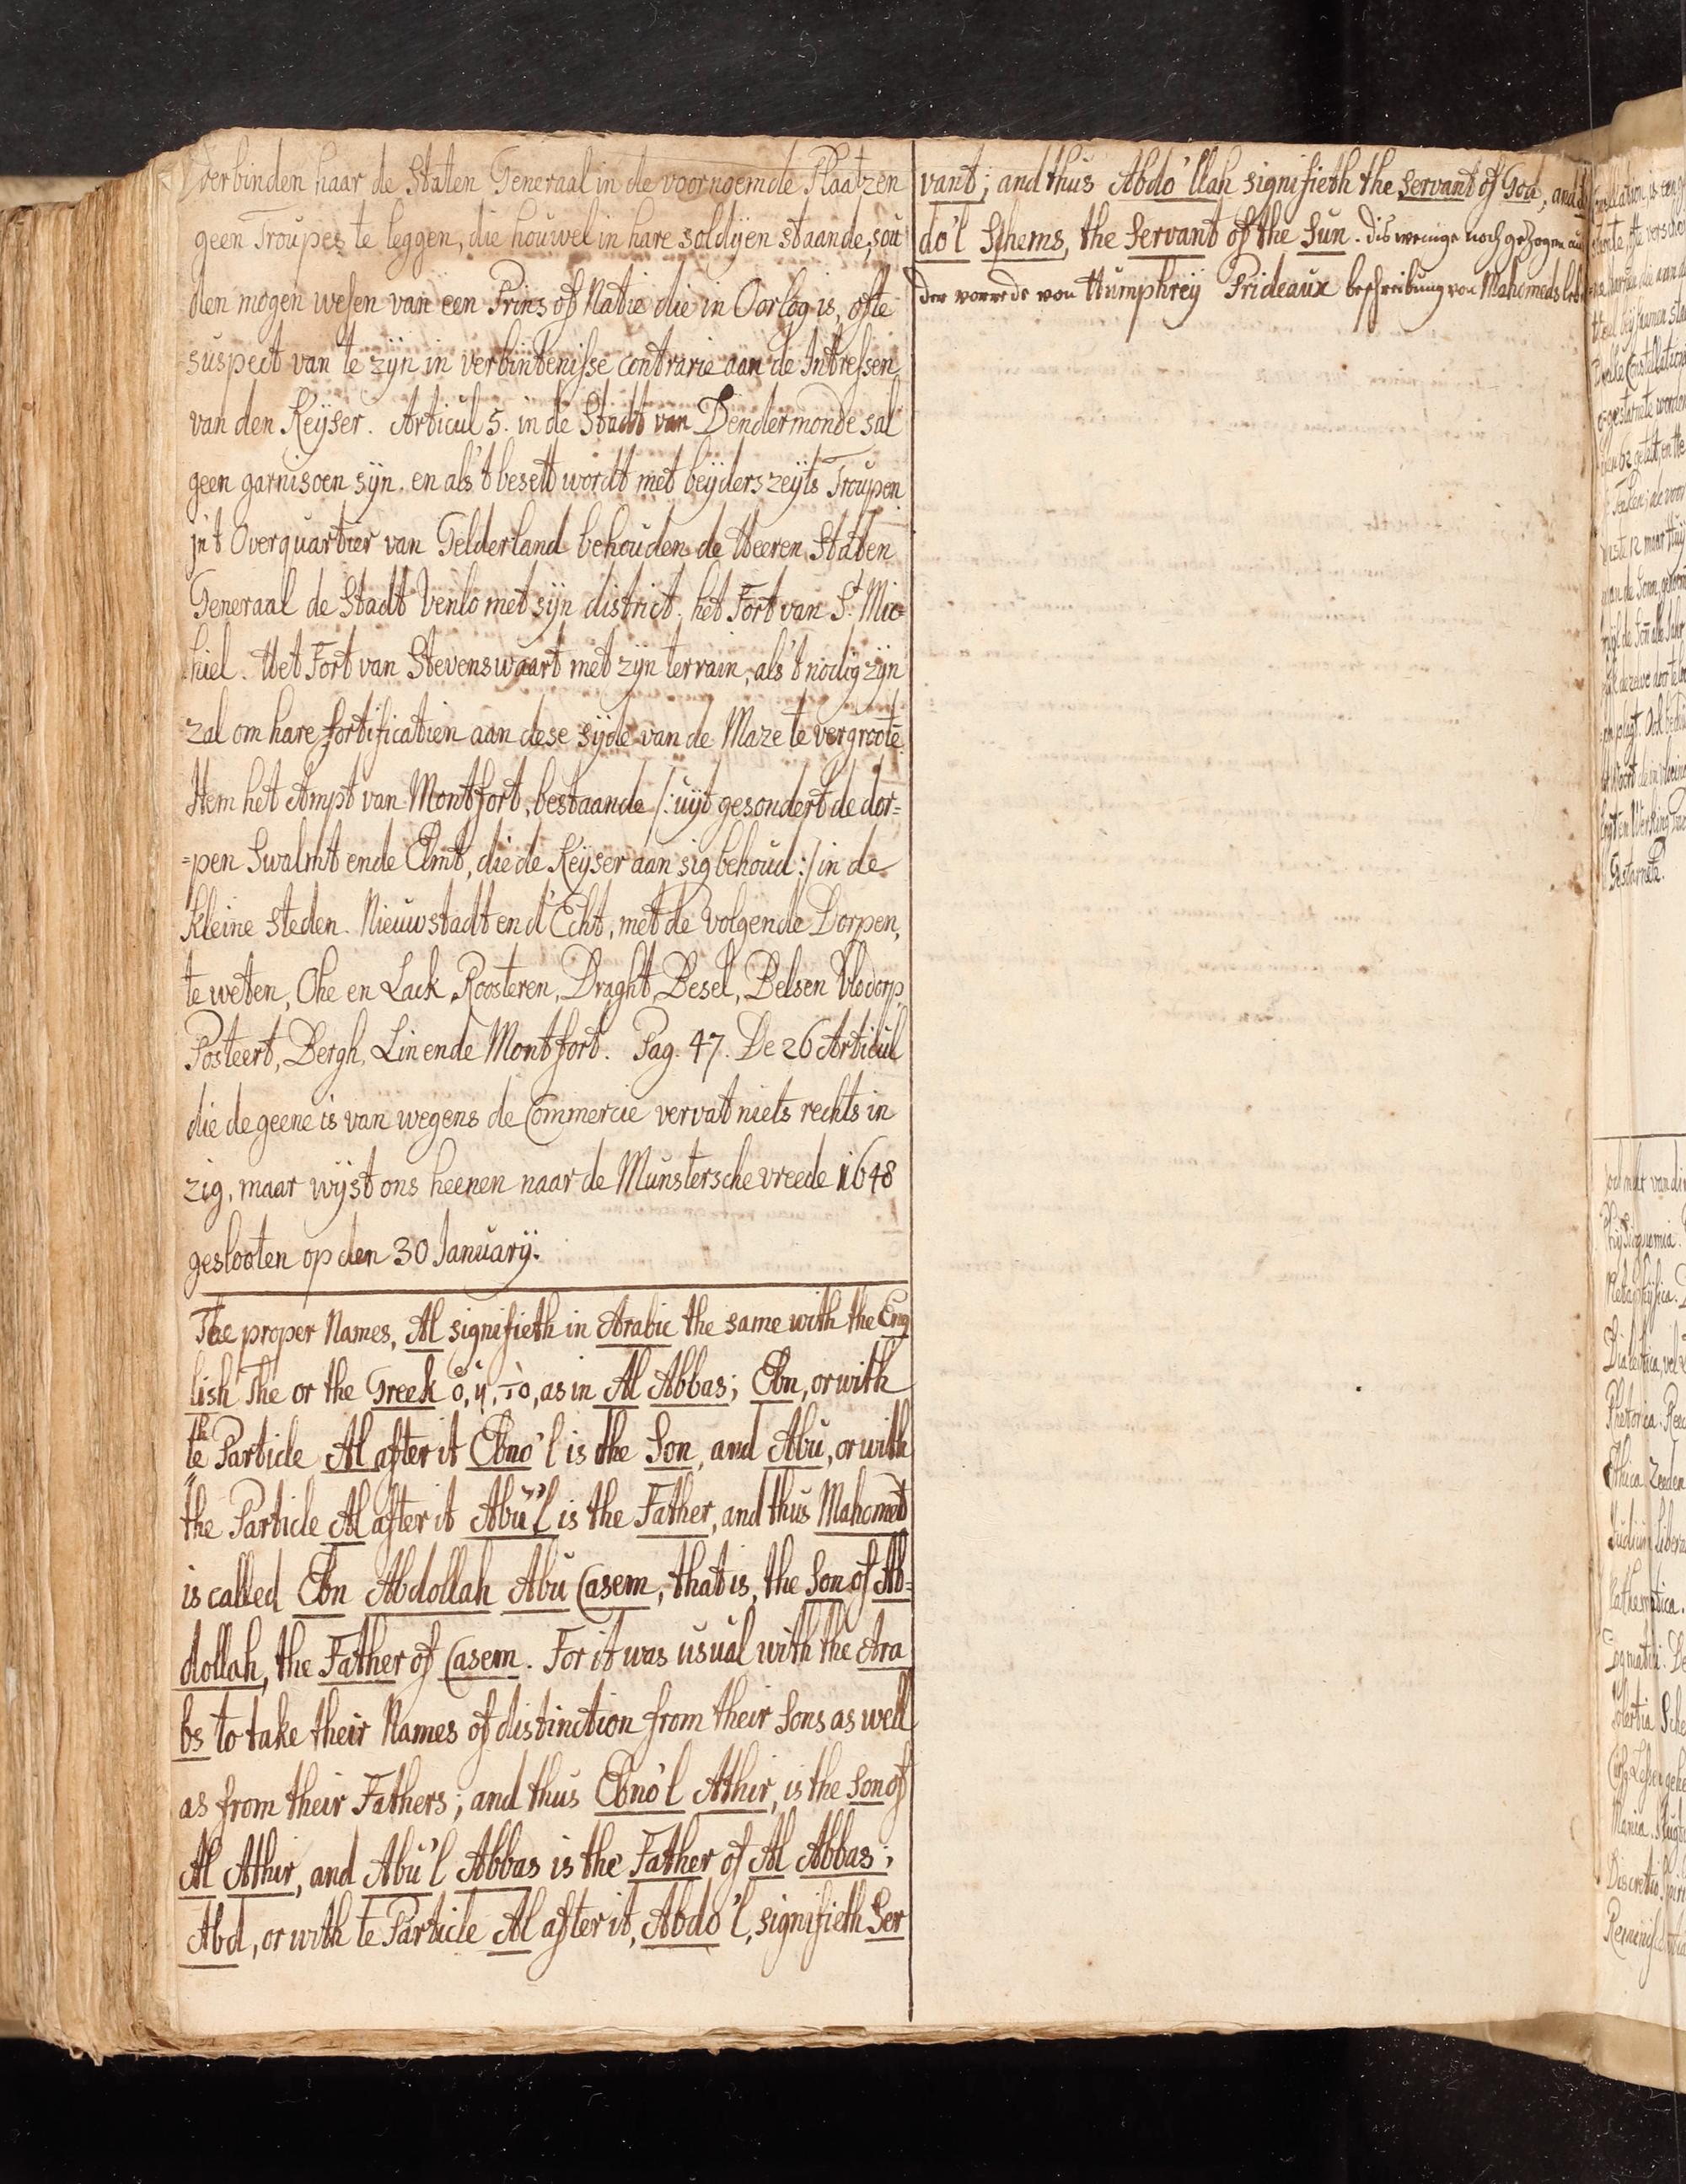 verbinden haar de Staten Generaal in de voorngemde Plaatzen
geen Troupes te leggen, die houwel in hare soldijen staande, sou
den mogen wesen van een Prins of Natie die in Oorlog is, ofte
suspect van te zijn in verbintenisse contrarie aan de Intressen
van den Keijser. Articul 5. in de Stadt van Dendermonde sal
geen garnisoen sijn. en als't besett wordt met beijders zeijts Troupen
in't Overquartier van Gelderland behouden de Heeren Staten
Generaal de Stadt Venlo met sijn district. het Fort van St. Mic
hiel. Het Fort van Stevenswaart met zijn terrain, als't nodig zijn
zal om hare fortificatien aan dese sijde van de Maze te vergroote.
Item het Ampt van Montfort, bestaande /: uijt gesondert de dor=
=pen Swalmt ende Elmt, die de Keijser aan sig behoud :/ in de
kleine steden. Nieuwstadt end' Echt, met de volgende Dorpen,
te weten, Ohe en Lack, Roosteren, Draght, Besel, Belsen Vlodorp
Posteert, Bergh, Lin ende Montfort. Pag. 47. De 26 Articul
die de geene is van wegens de Commercie vervat niets rechts in
zig, maar wijst ons heenen naar de Munstersche vreede 1648
geslooten op den 30 Januarij.
The proper Names, Al signifieth in Arabic the same with the Eng
lish The or the Greek ὁ, ἡ, τὸ, as in Al Abbas; Ebn, or with
the Particle Al after it Ebno'l is the Son, and Abu, or with
the Particle Al after it Abu'l is the Father, and thus Mahomet
is called Ebn Abdollah Abu Casem, that is, the Son of Ab=
dollah, the Father of Casem. For it was usual with the Ara
bs to take their Names of distinction from their Sons as well
as from their Fathers; and thus Ebno'l Athir, is the Son of
Al Athir, and Abu'l Abbas is the Father of Al Abbas;
Abd, or with te Particle Al after it, Abdo'l, signifieth Ser
vant; and thus Abdo'llah signifieth the Servant of God, and
do'l Schems, the Servant of the Sun. dis wenige noch gezogen au
der vorrede von Humphreij Prideaux beschreibung von Mahomeds